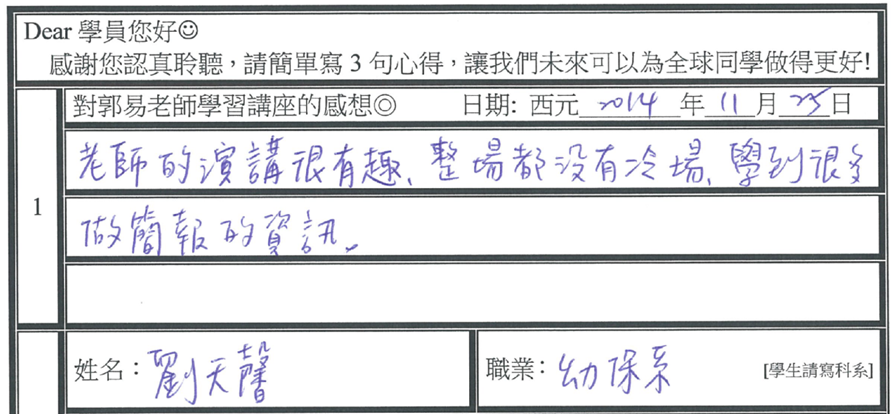 Dear 學員您好☺
感謝您認真聆聽，請簡單寫 3 句心得，讓我們未來可以為全球同學做得更好!
對郭易老師學習講座的感想◎ 日期: 西元 2014 年 11 月 25 日
1
老師的演講很有趣、整場都沒有冷場、學到很多
做簡報的資訊。
姓名：劉天馨 職業：幼保系 [學生請寫科系]